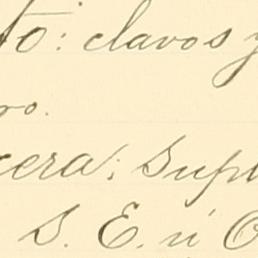 to: clavos y
ro.
cera: Supl
S. E. ú O